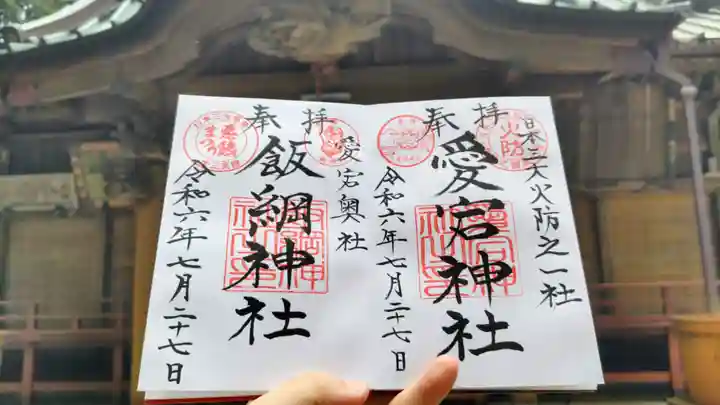 日本三大火防之一社
奉拝
愛宕神社
火防
令和六年七月二十七日
愛宕奥社
奉拝
飯綱神社
悪態まつり
令和六年七月二十七日